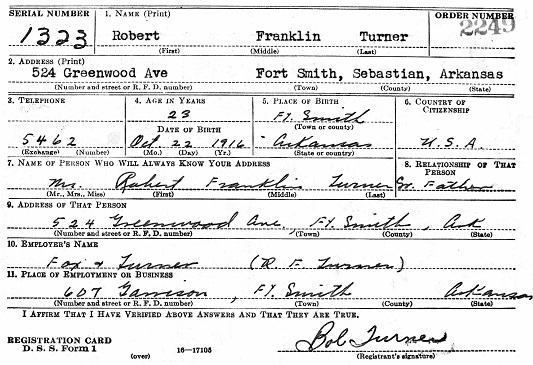 SERIAL NUMBER 1. NAME (Print) ORDER NUMBER
1323 Robert Franklin Turner 2249
(First) (Middle) (Last)
2. ADDRESS (Print)
524 Greenwood Ave Fort Smith, Sebastian, Arkansas
(Number and street or R. F. D. number) (Town) (County) (State)
3. TELEPHONE 4. AGE IN YEARS 5. PLACE OF BIRTH 6. COUNTRY OF CITIZENSHIP
23 Ft. Smith
(Town or county)
DATE OF BIRTH
5462 Oct 22 1916 Arkansas U.S.A.
(Exchange) (Number) (Mo.) (Day) (Yr.) (State or country)
7. NAME OF PERSON WHO WILL ALWAYS KNOW YOUR ADDRESS 8. RELATIONSHIP OF THAT PERSON
Mr. Robert Franklin Turner Sr. Father
(Mr., Mrs., Miss) (First) (Middle) (Last)
9. ADDRESS OF THAT PERSON
524 Greenwood Ave, Ft. Smith, Ark
(Number and street or R. F. D. number) (Town) (County) (State)
10. EMPLOYER'S NAME
Fox & Turner (R. F. Turner)
11. PLACE OF EMPLOYMENT OR BUSINESS
607 Garrison, Ft. Smith Arkansas
(Number and street or R. F. D. number) (Town) (County) (State)
I AFFIRM THAT I HAVE VERIFIED ABOVE ANSWERS AND THAT THEY ARE TRUE.
Bob Turner
REGISTRATION CARD
D. S. S. Form 1 (over) 16—17105 (Registrant's signature)